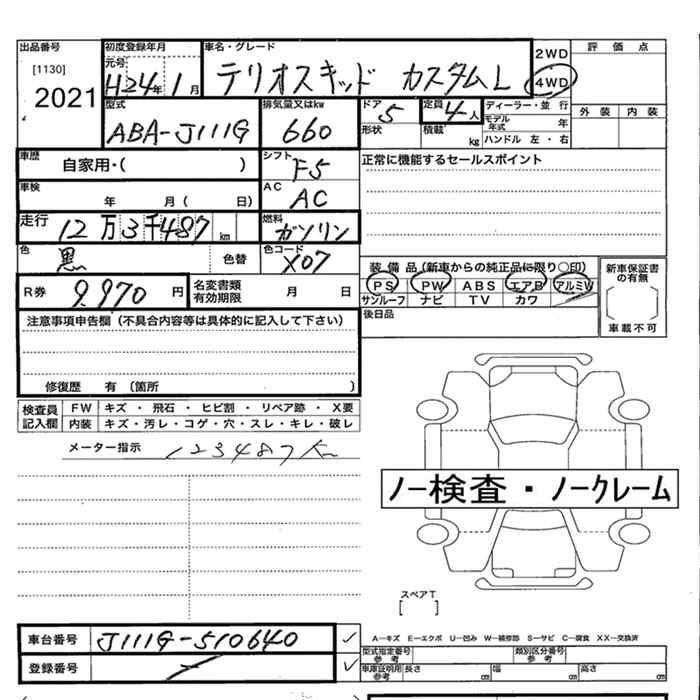 出品番号 初度登録年月 車名・グレード 2WD 評価点
[1130] 元号 H24年 1月 テリオスキッド カスタムL 4WD
2021
型式 排気量又はkw ドア 定員 ディーラー・並行 外装 内装
ABA-J111G 660 5 4人 モデル年式 年
形状 積載 kg ハンドル 左・右
車歴 自家用・( ) シフト F5 正常に機能するセールスポイント
車検 年 月( 日) AC AC
走行 12万3千487km 燃料 ガソリン
色 黒 色替 色コード X07
装備品(新車からの純正品に限り○印) 新車保証書の有無
R券 9,970円 名変書類有効期限 月 日 PS PW ABS エアB アルミW
サンルーフ ナビ TV カワ
後日品 車載不可
注意事項申告欄(不具合内容等は具体的に記入して下さい)
修復歴 有(箇所 )
検査員記入欄 FW キズ・飛石・ヒビ割・リペア跡・X要
内装 キズ・汚レ・コゲ・穴・スレ・キレ・破レ
メーター指示 123487km
ノー検査・ノークレーム
スペアT
[ ]
車台番号 J111G-510640
A―キズ E―エクボ U―凹み W―補修跡 S―サビ C―腐食 XX―交換済
型式指定番号参考 類別区分番号参考
登録番号 車庫証明用参考 長さ cm 幅 cm 高さ cm